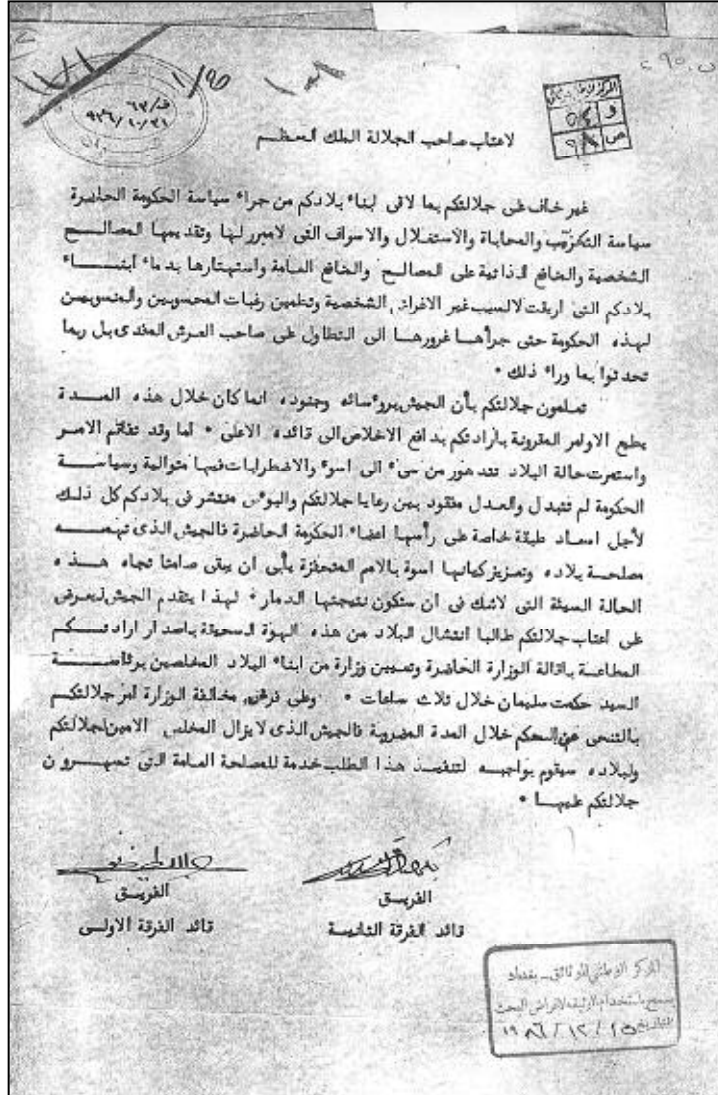 ١/٩٥
ف/٦٣
٩٣٦/١٠/٣١
و ٥٤
ص ٦٨
لاعتاب صاحب الجلالة الملك المعظم
غير خاف على جلالتكم بما لاقى ابناء بلادكم من جراء سياسة الحكومة الحاضرة
سياسة التحزب والمحاباة والاستغلال والاسراف التى لامبرر لها وتقديمها المصالح
الشخصية والمنافع الذاتية على المصالح والمنافع العامة واستهتارها بدماء ابناء
بلادكم التى اريقت لالسبب غير الاغراض الشخصية وتطمين رغبات المحسوبين والمنسوبين
لهذه الحكومة حتى جرأها غرورها الى التطاول على صاحب العرش المفدى بل ربما
تحدثوا بما وراء ذلك •
تعلمون جلالتكم بأن الجيش برؤسائه وجنوده انما كان خلال هذه المدة
يطيع الاوامر المقرونة بأرادتكم بدافع الاخلاص الى قائده الاعلى • اما وقد تفاقم الامر
واستمرت حالة البلاد تتدهور من سىء الى اسوء والاضطرابات فيها متوالية وسياسة
الحكومة لم تتبدل والعدل مفقود بين رعايا جلالتكم والبؤس منتشر فى بلادكم كل ذلك
لأجل اسعاد طبقة خاصة على رأسها اعضاء الحكومة الحاضرة فالجيش الذى تهمه
مصلحة بلاده وتعزيز كيانها اسوة بالامم المتحفزة يأبى ان يبقى صامتا تجاه هذه
الحالة السيئة التى لاشك فى ان ستكون نتيجتها الدمار • لهذا يتقدم الجيش ليعرض
على اعتاب جلالتكم طالبا انتشال البلاد من هذه الهوة السحيقة باصدار ارادتكم
المطاعة باقالة الوزارة الحاضرة وتعيين وزارة من ابناء البلاد المخلصين برئاسة
السيد حكمت سليمان خلال ثلاث ساعات • وعلى فرض مخالفة الوزارة امر جلالتكم
بالتنحى عن الحكم خلال المدة المضروبة فالجيش الذى لا يزال المخلص الامين لجلالتكم
ولبلاده سيقوم بواجبه لتنفيذ هذا الطلب خدمة للمصلحة العامة التى تسهرون
جلالتكم عليها •
الفريق الفريق
قائد الفرقة الثانية قائد الفرقة الاولى
المركز الوطنى للوثائق - بغداد
يسمح باستخدام الوثيقة لاغراض البحث
التاريخ ١٩٨٦/١٢/٢٥